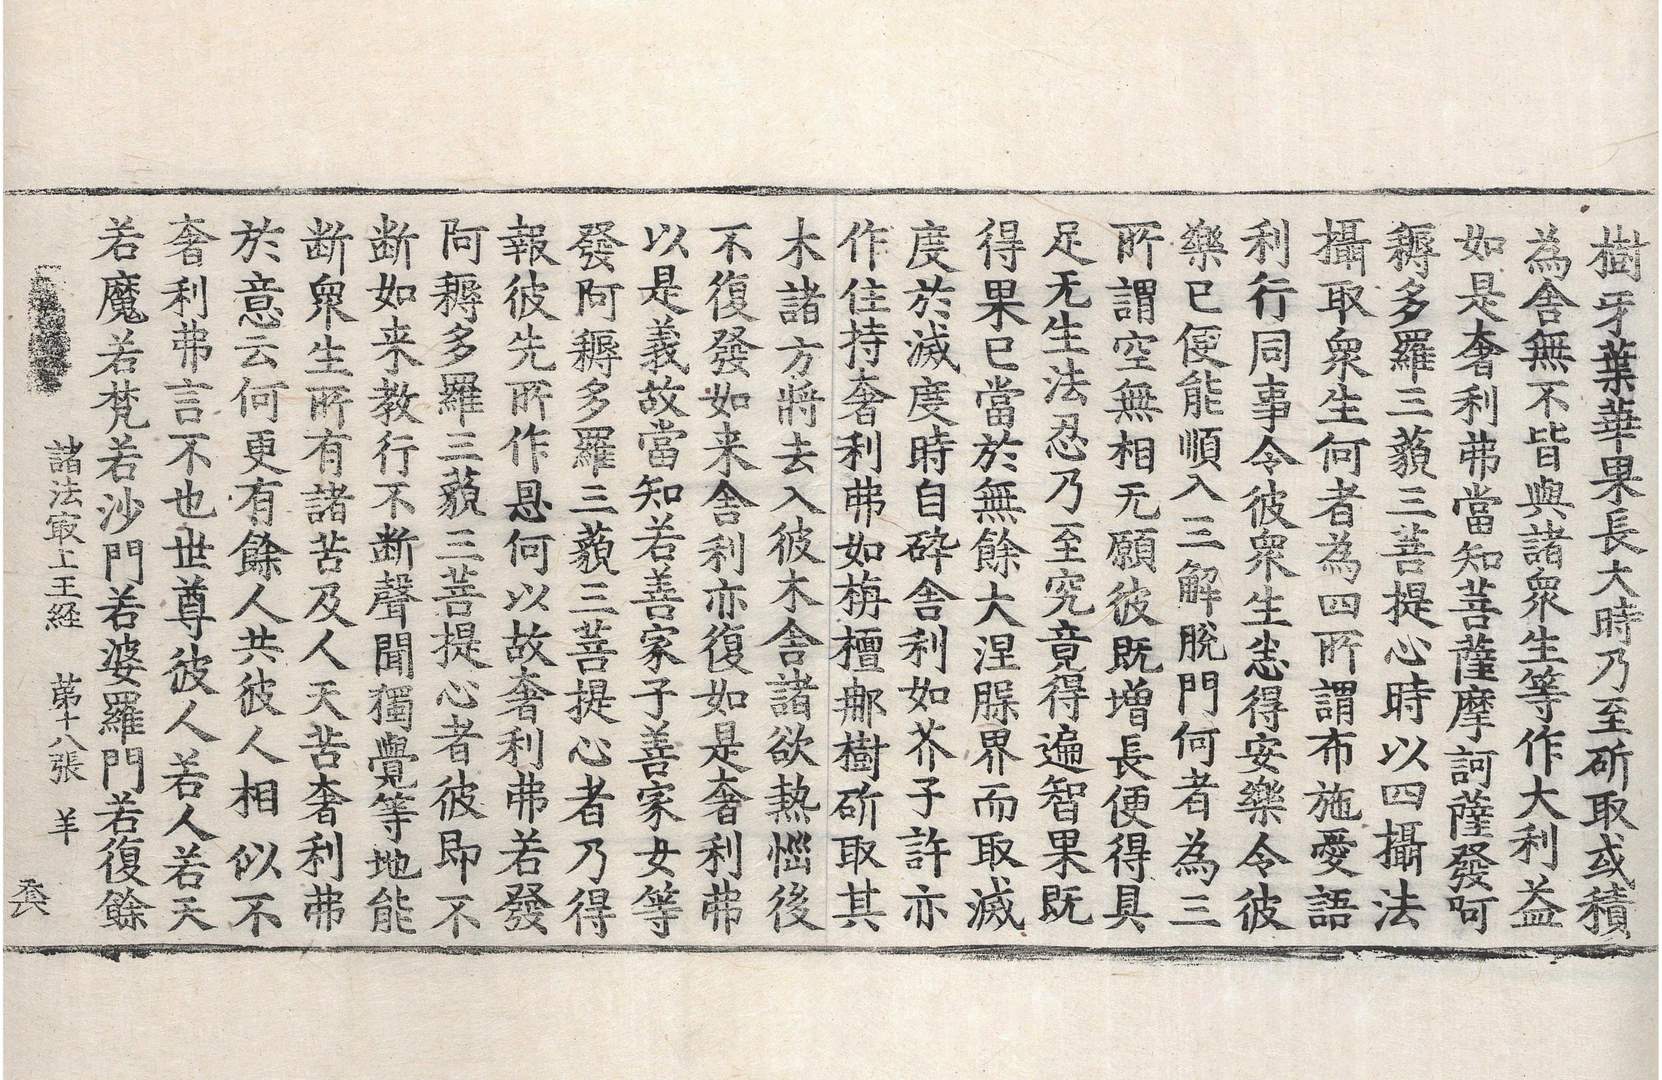 樹牙葉華果長大時乃至斫取或積
為舍無不皆與諸衆生等作大利益
如是奢利弗當知菩薩摩訶薩發阿
耨多羅三藐三菩提心時以四攝法
攝取衆生何者為四所謂布施愛語
利行同事令彼衆生悉得安樂令彼
樂已便能順入三解脫門何者為三
所謂空無相无願彼既增長便得具
足无生法忍乃至究竟得遍智果既
得果已當於無餘大涅槃界而取滅
度於滅度時自碎舍利如芥子許亦
作住持奢利弗如栴檀㮈樹斫取其
木諸方將去入彼木舍諸欲熱惱後
不復發如来舍利亦復如是奢利弗
以是義故當知若善家子善家女等
發阿耨多羅三藐三菩提心者乃得
報彼先所作恩何以故奢利弗若發
阿耨多羅三藐三菩提心者彼即不
断如来教行不断聲聞獨覺等地能
断衆生所有諸苦及人天苦奢利弗
於意云何更有餘人共彼人相似不
奢利弗言不也世尊彼人若人若天
若魔若梵若沙門若婆羅門若復餘
諸法㝡上王経　第十八張　羊